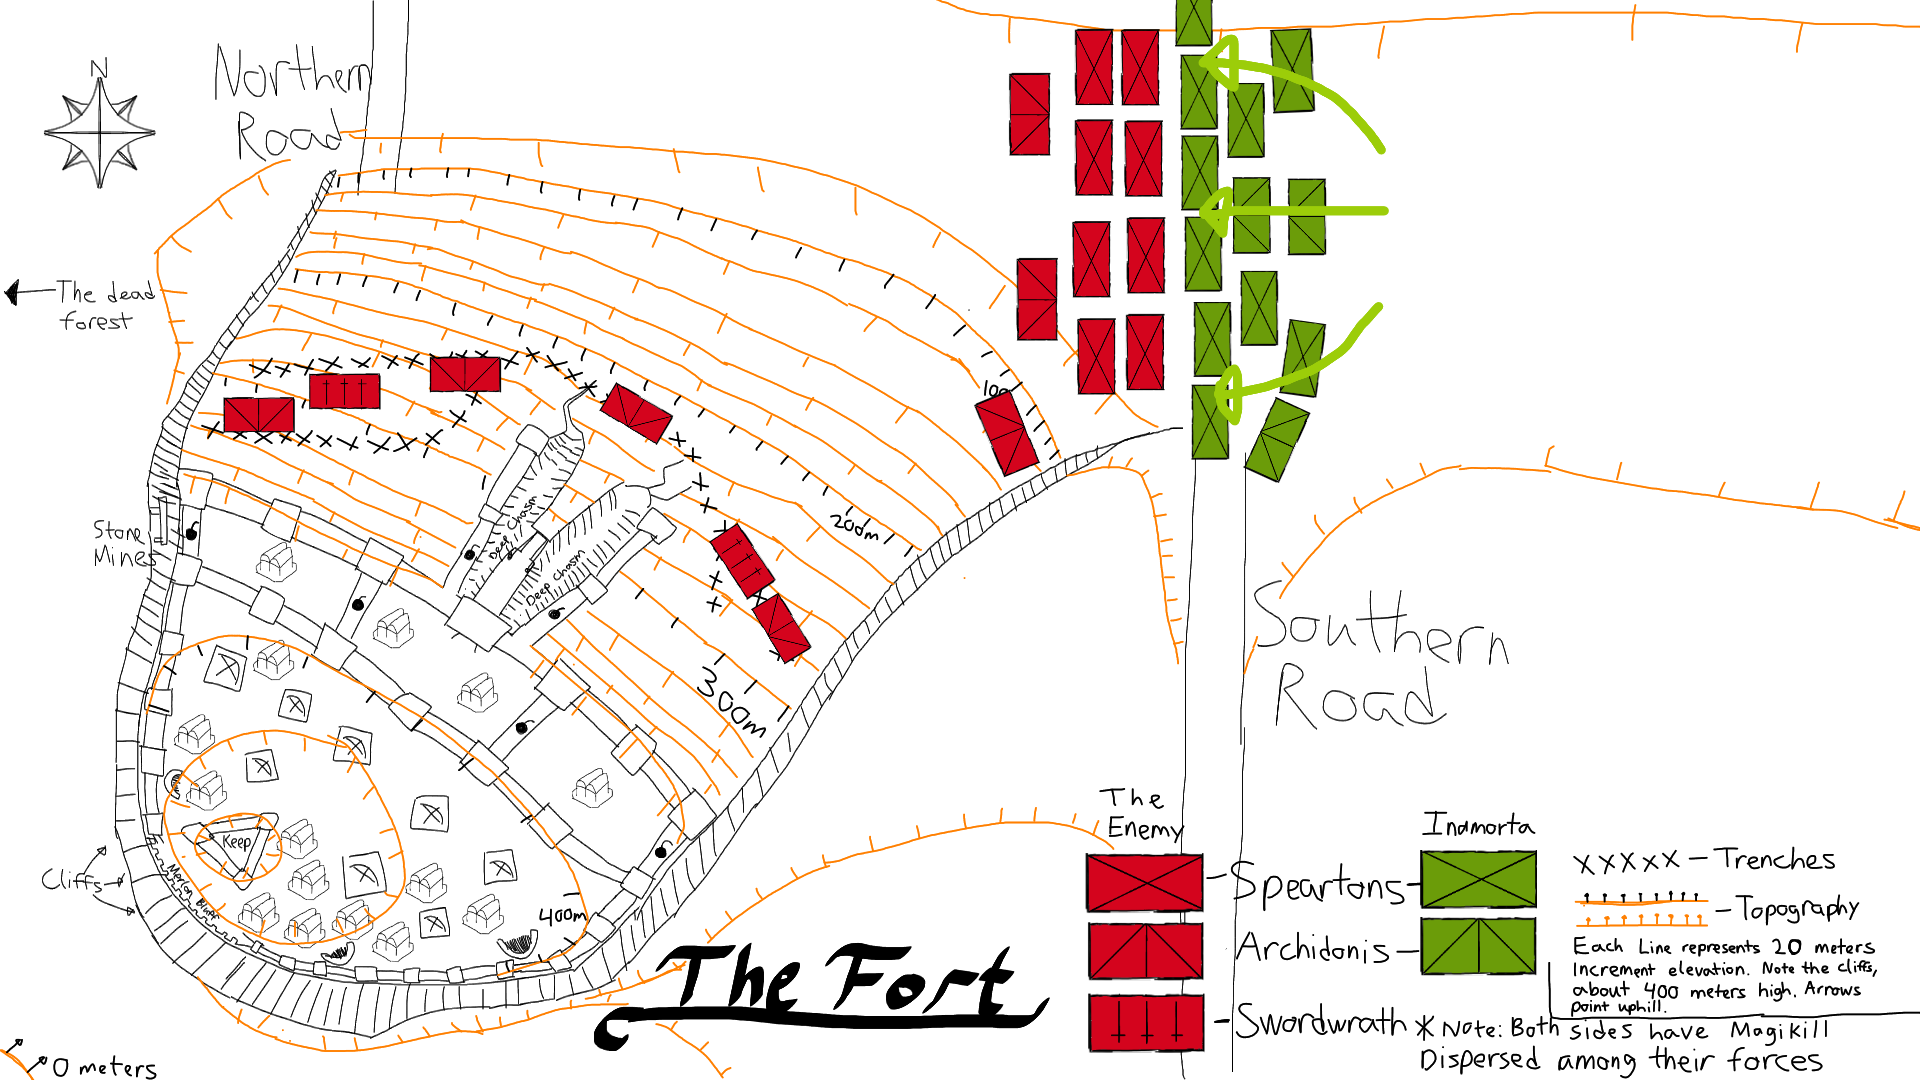 N
Northern
Road
The dead
forest
100
200m
300m
400m
Stone
Mines
Deep Chasm
Deep Chasm
Keep
Merlon Bluff
Cliffs
0 meters
Southern
Road
The Fort
The
Enemy
Inamorta
Speartons
Archidonis
Swordwrath
XXXXX - Trenches
- Topography
Each Line represents 20 meters
Increment elevation. Note the cliffs,
about 400 meters high. Arrows
point uphill.
* Note: Both sides have Magikill
Dispersed among their forces